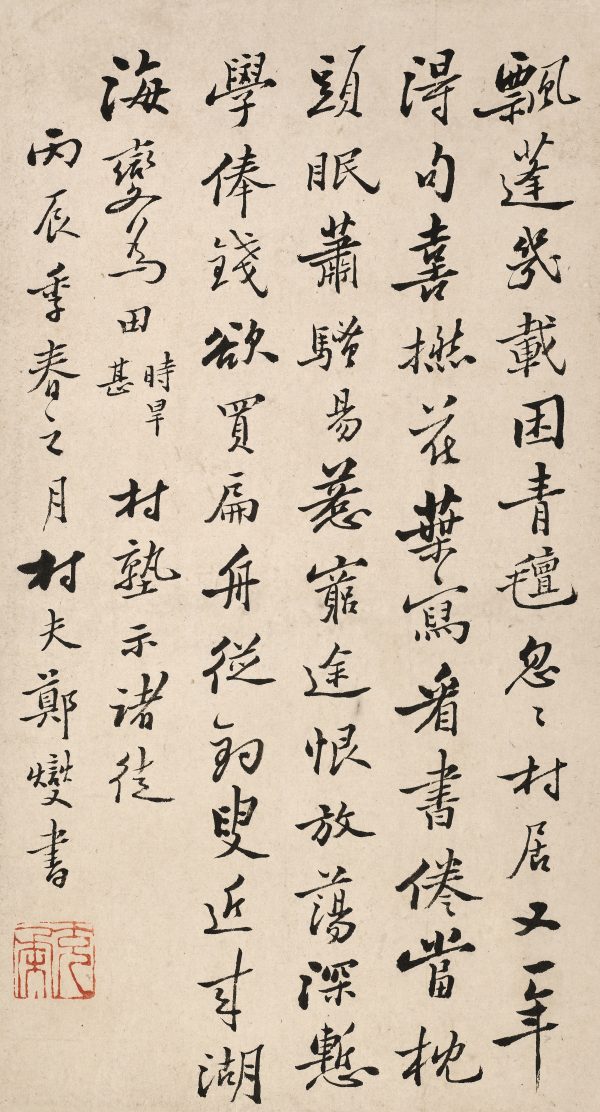 飄蓬幾載困青氈忽〻村居又一年
得句喜撚花葉寫看書倦當枕
頭眠蕭騷易惹窮途恨放蕩深慙
學俸錢欲買扁舟從釣叟近來湖
海變為田時旱甚村塾示諸徒
丙辰季春之月村夫鄭燮書
克柔